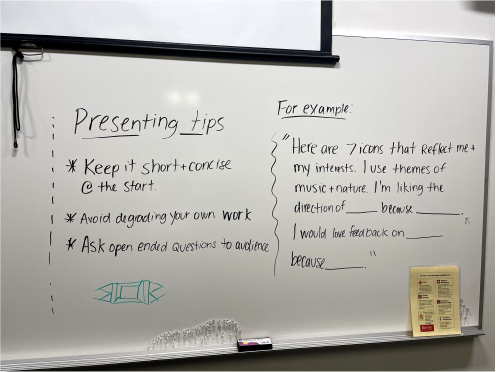 Presenting tips
* Keep it short + concise
@ the start.
* Avoid degrading your own work
* Ask open ended questions to audience
For example:
"Here are 7 icons that reflect me +
my interests. I use themes of
music + nature. I'm liking the
direction of ____ because ____.
I would love feedback on ____
because ____."